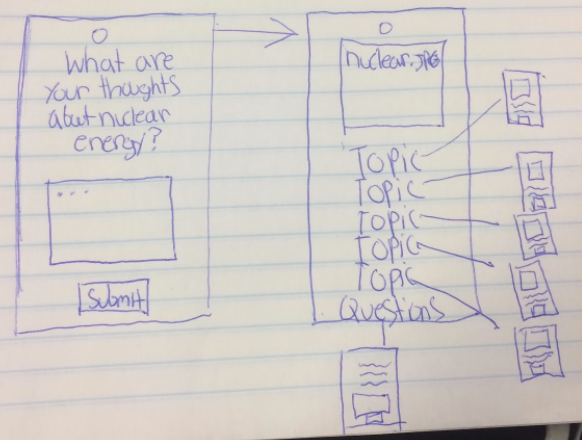 What are
your thoughts
about nuclear
energy?
...
Submit
nuclear.JPG
Topic
Topic
Topic
Topic
Topic
Questions